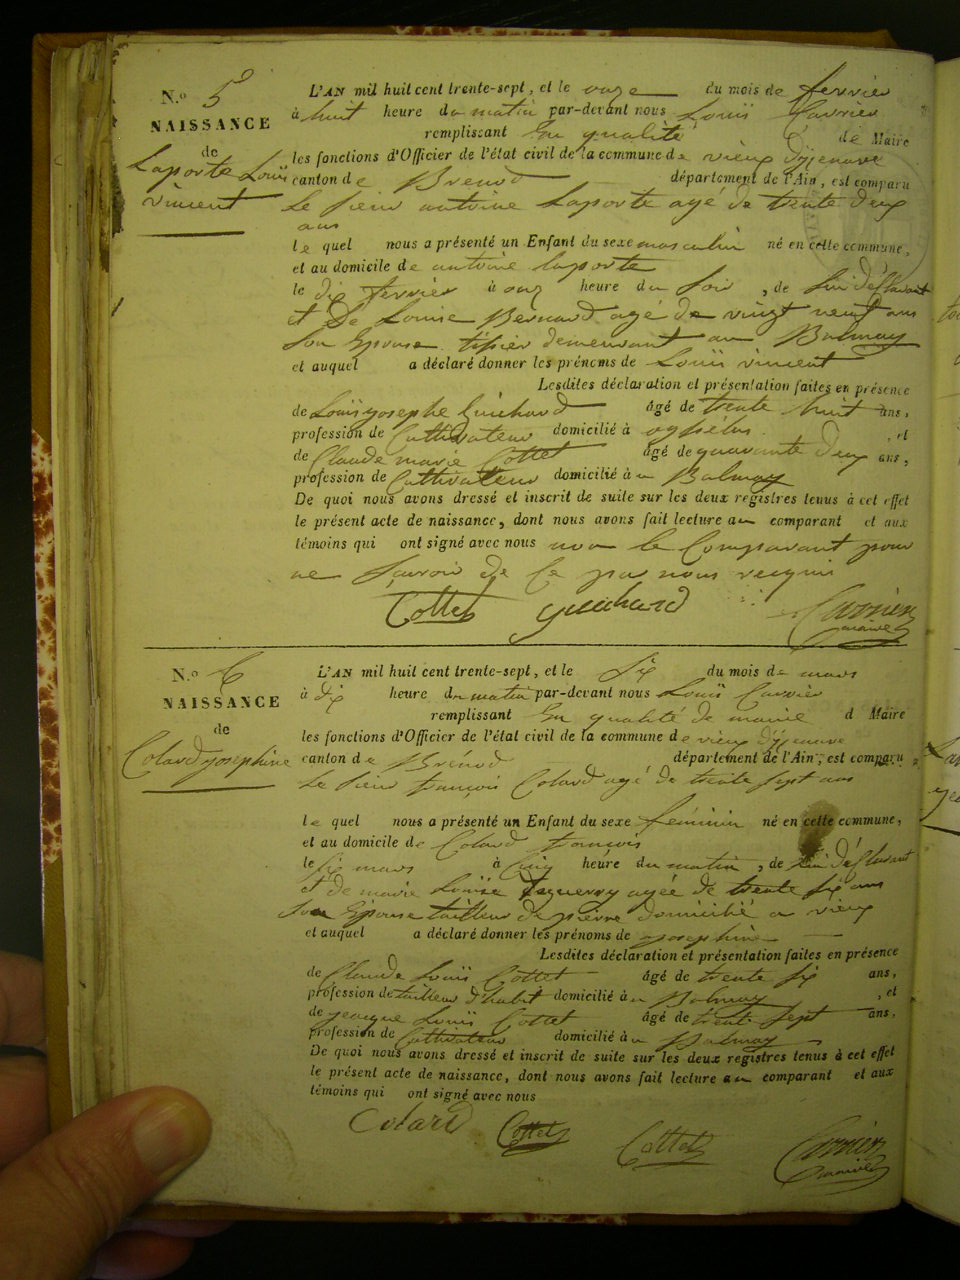 N.o 5
NAISSANCE
de
Laporte Louis
vincent
L'AN mil huit cent trente-sept, et le onze du mois de fevrier
à huit heure du matin par-devant nous Louis Carrier
remplissant En qualité de Maire
les fonctions d'Officier de l'état civil de la commune de vieux d'yzenave
canton de Brenod département de l'Ain, est comparu
Le sieur antoine Laporte agé de trente deux
ans
le quel nous a présenté un Enfant du sexe masculin né en cette commune,
et au domicile de antoine laporte
le dix fevrier à onz heure du soir, de lui déclarant
et De Louise Bernard agé de vingt neuf ans
son Epouse tisier demeurant au Balmay
et auquel a déclaré donner les prénoms de Louis vincent
Lesdites déclaration et présentation faites en présence
de Louis josephe Guichard âgé de trente huit ans,
profession de Cultivateur domicilié à , et
de Claude marie Cottet âgé de quarante deux ans,
profession de Cultivateur domicilié à u Balmay
De quoi nous avons dressé et inscrit de suite sur les deux registres tenus à cet effet
le présent acte de naissance, dont nous avons fait lecture au comparant et aux
témoins qui ont signé avec nous non le Comparant pour
ne savoir de Ce par nous requis
Cottet guichard Carrier
maire
N.o 6
NAISSANCE
de
Colard josephine
L'AN mil huit cent trente-sept, et le six du mois de mars
à dix heure du matin par-devant nous Louis Carrier
remplissant En qualité de maire d Maire
les fonctions d'Officier de l'état civil de la commune de vieux d'yzenave
canton de Brénod département de l'Ain, est comparu
Le sieur francois Colard agé de trente sept ans
le quel nous a présenté un Enfant du sexe féminin né en cette commune,
et au domicile de Colard francois
le six mars à cinq heure du matin, de lui déclarant
et de marie Louise agée de trente six ans
son Epouse tailleur de pierre domicilié a vieux
et auquel a déclaré donner les prénoms de josephine
Lesdites déclaration et présentation faites en présence
de Claude Louis Cottet âgé de trente six ans,
profession de tailleur d'habit domicilié à u Balmay , et
de jeacque Louis Cottet âgé de trente sept ans,
profession de Cultivateur domicilié à u Balmay
De quoi nous avons dressé et inscrit de suite sur les deux registres tenus à cet effet
le présent acte de naissance, dont nous avons fait lecture au comparant et aux
témoins qui ont signé avec nous
Colard Cottet Cottet Carrier
maire